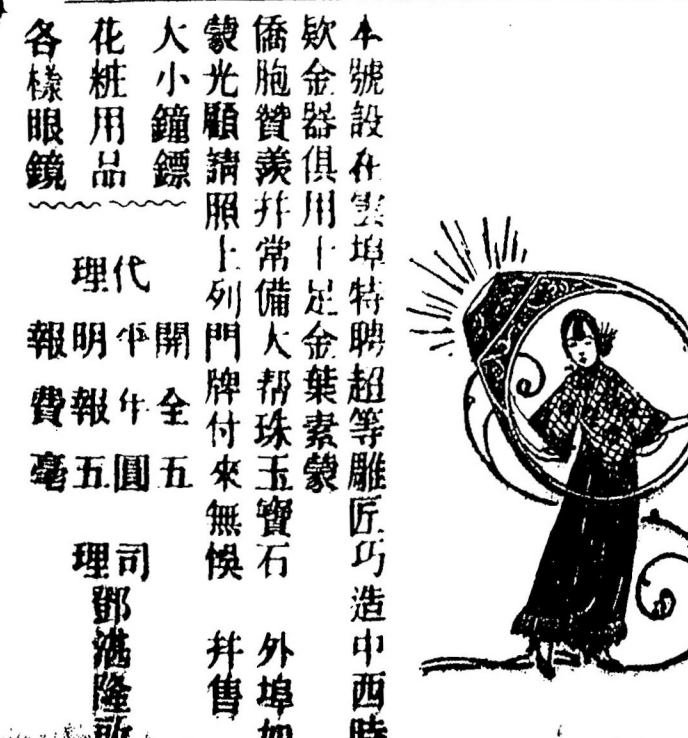 本號設在雲埠特聘超等雕匠巧造中西時
欵金器俱用十足金葉素蒙
僑胞贊羨并常備大帮珠玉寶石 外埠如
蒙光顧請照上列門牌付來無悞 并售
大小鐘鏢
花粧用品
各樣眼鏡
代理
開平明報
全年報費
五圓五毫
司理
鄧湛隆